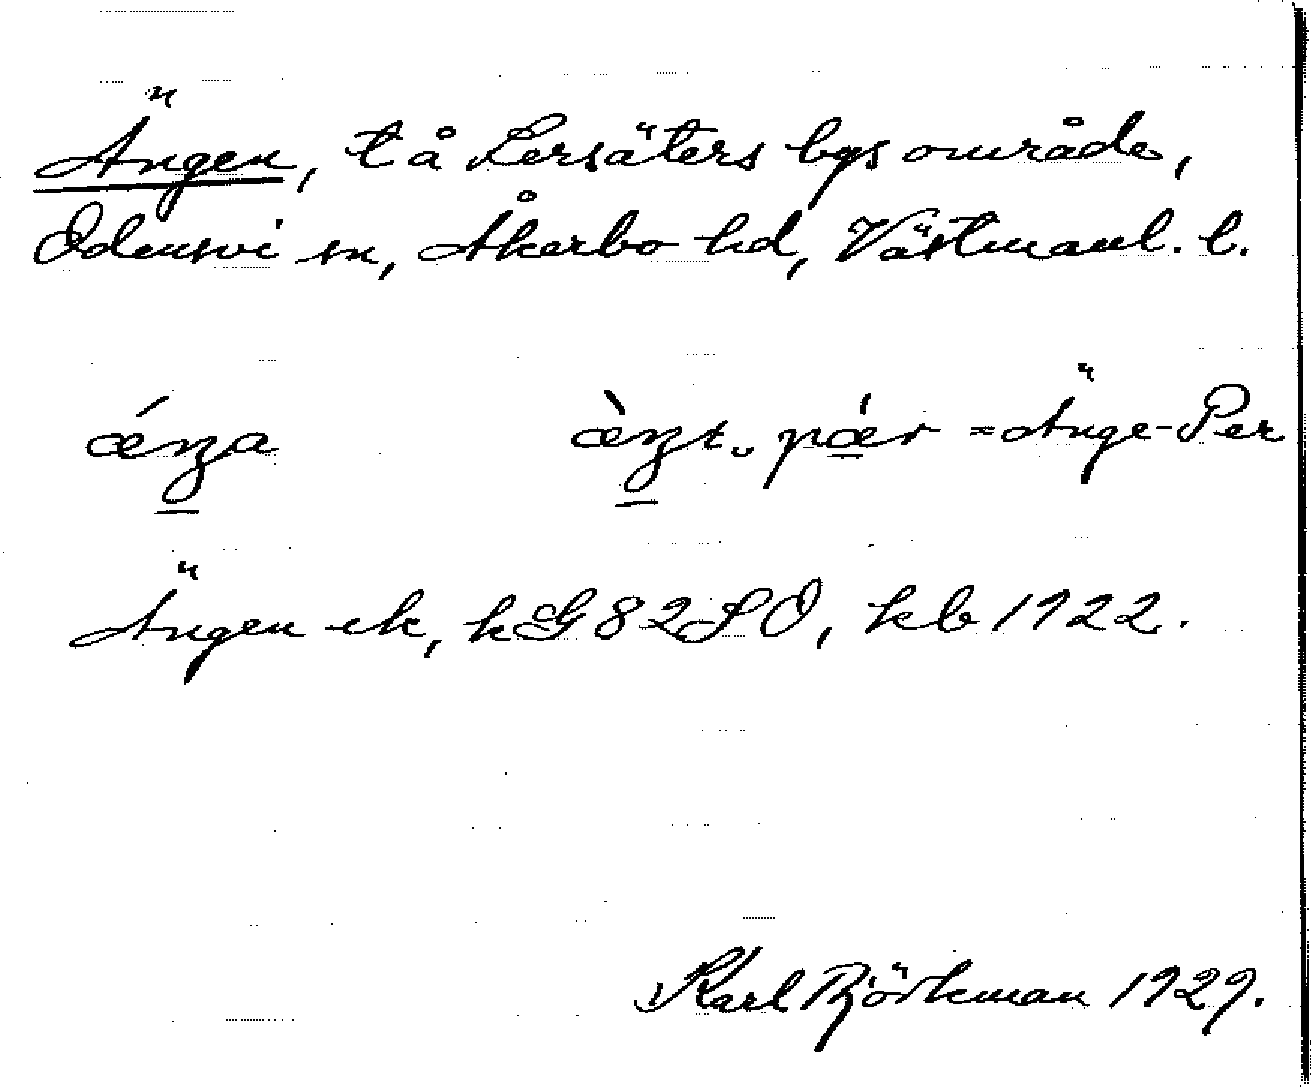 Ängen, t å Lersäters bys område,
Odensvi sn, Åkerbo hd, Västmanl. l.
ǽŋa æ̀ŋɩ ̮ pǽr = Änge-Per
Ängen ek, kG 82 SO, kb 1922.
Karl Björkman 1929.